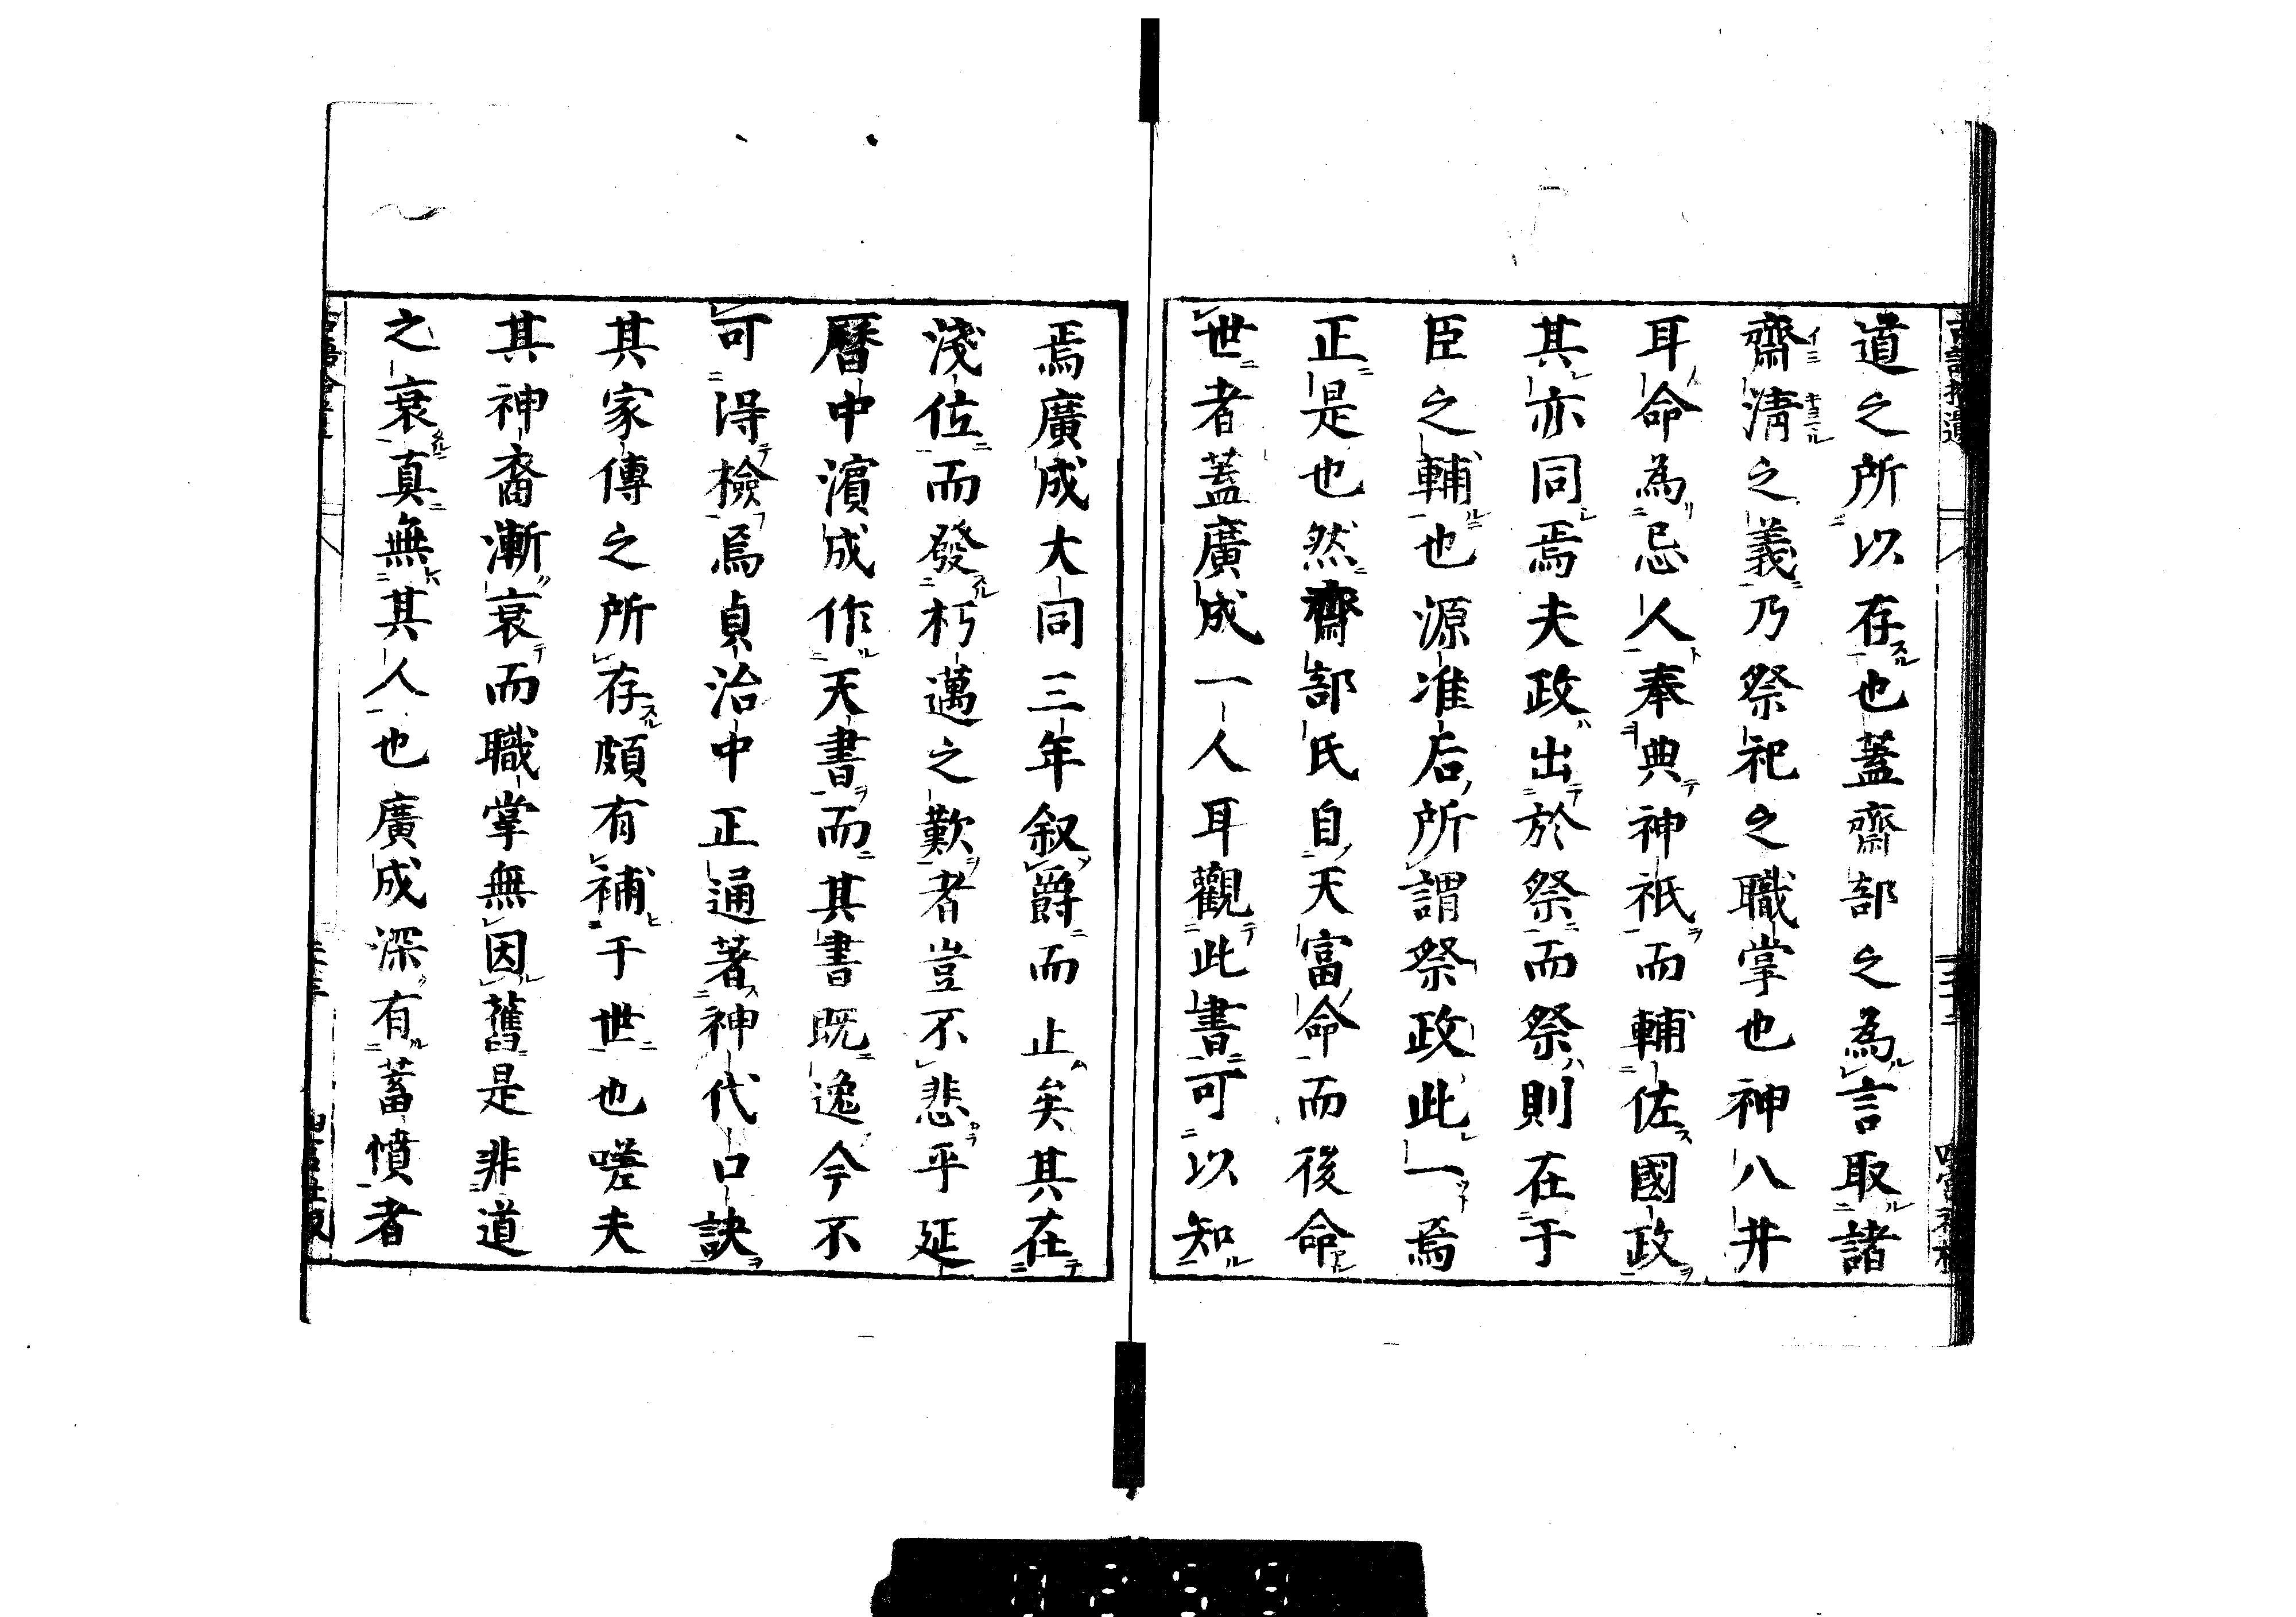 道之所以存也蓋齋部之為言取諸
齋淸之義乃祭祀之職掌也神八井
耳命為忌人奉典神祇而輔佐國政
其亦同焉夫政出於祭而祭則在于
臣之輔也源准后所謂祭政此一焉
正是也然齋部氏自天富命而後命
世者蓋廣成一人耳觀此書可以知
焉廣成大同三年叙爵而止矣其在
淺位而發朽邁之歎者豈不悲乎延
曆中濱成作天書而其書既逸今不
可得檢焉貞治中正通著神代口訣
其家傳之所存頗有補于世也嗟夫
其神裔漸衰而職掌無因舊是非道
之衰真無其人也廣成深有蓄憤者